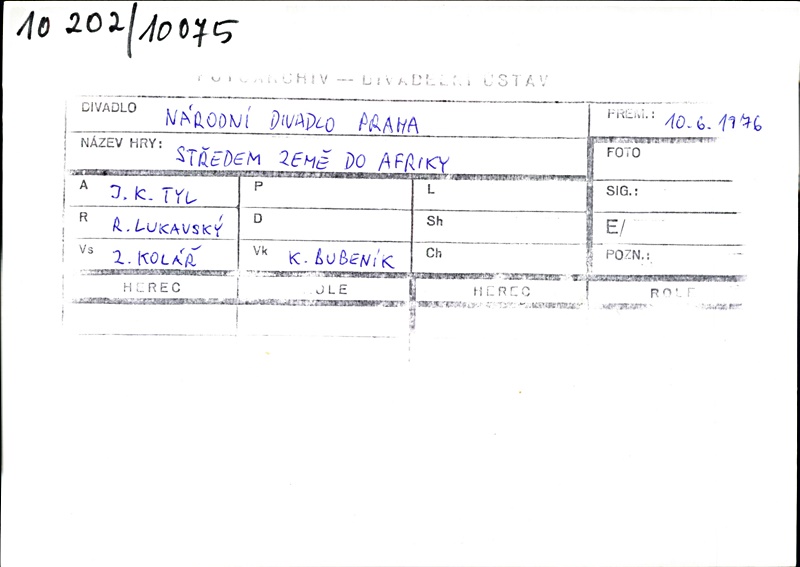 10 202/10075
FOTOARCHIV — DIVADELNÍ ÚSTAV
DIVADLO NÁRODNÍ DIVADLO PRAHA PREM.: 10.6.1976
NÁZEV HRY: STŘEDEM ZEMĚ DO AFRIKY FOTO
A J.K. TYL P L SIG.:
R R. LUKAVSKÝ D Sh E/
Vs Z. KOLÁŘ Vk K. BUBENÍK Ch POZN.:
HEREC ROLE HEREC ROLE